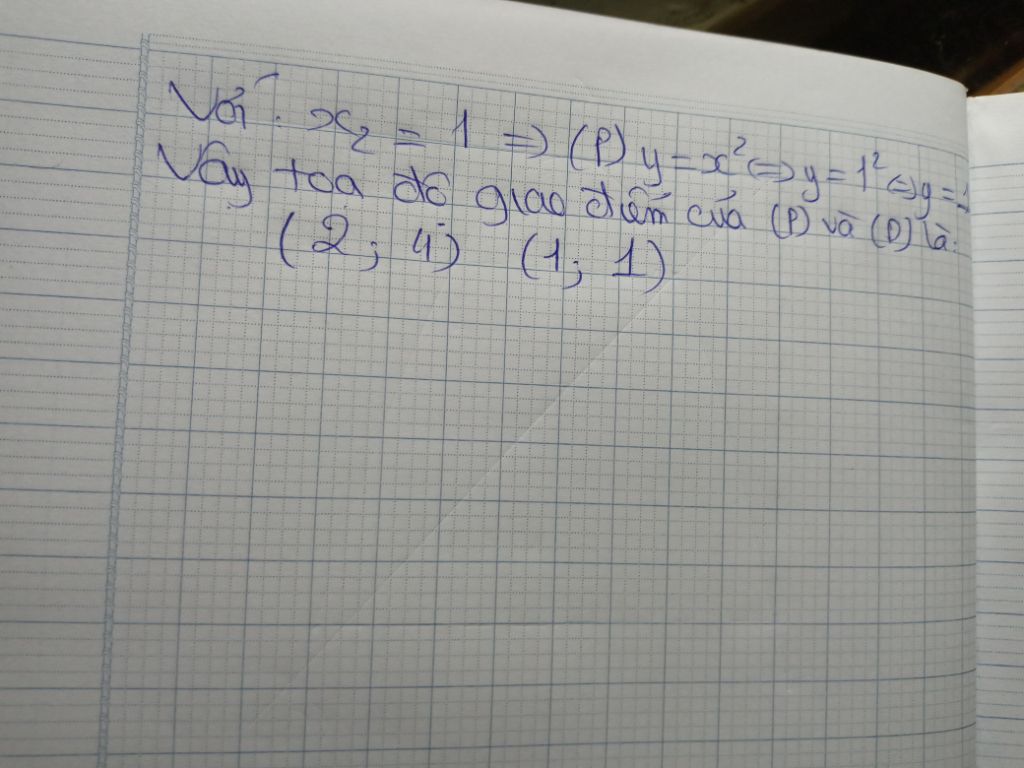 Với x₂ = 1 => (P) y = x² <=> y = 1² <=> y = 1
Vậy toạ độ giao điểm của (P) và (D) là:
(2; 4) (1; 1)